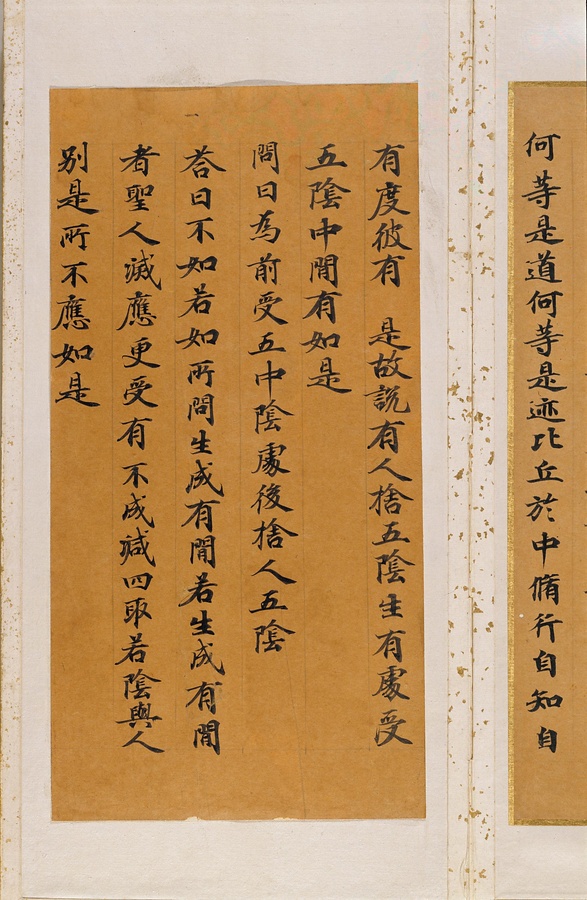 何等是道何等是迹比丘於中脩行自知自
有度彼有 是故說有人捨五陰生有處受
五陰中間有如是
問曰為前受五中陰處後捨人五陰
荅曰不如若如所問生成有間若生成有間
者聖人滅應更受有不成減四取若陰與人
別是所不應如是